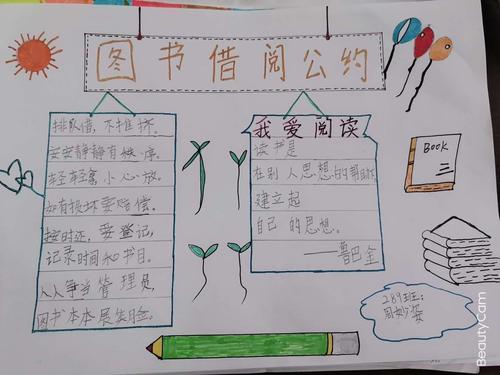 图书借阅公约
排队借，不推挤。
安安静静有秩序。
轻轻拿小心放。
如有损坏要赔偿。
按时还，要登记，
记录时间和书目。
人人争当管理员，
图书本本展笑脸。
我爱阅读
读书是
在别人思想的帮助下
建立起
自己的思想。
——鲁巴金
BOOK
三
289班：
BeautyCam